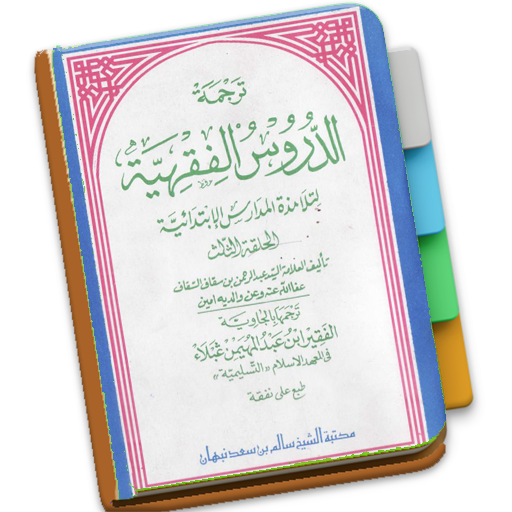 ترجمة
الدُّرُوسُ الفِقْهِيَّة
لتلامذة المدارس الإبتدائيَّة
الحلقة الثّلث
تأليف العلامة السيّد عبد الرحمن بن سقاف السقاف
عفا الله عنه وعن والديه امين
ترجمها بالجاويّة
الفقير ابن عبد المهيمن غبلاء
فى المعهد الاسلام « التسليمية »
طبع على نفقة
مكتبة الشيخ سالم بن سعد نبهان